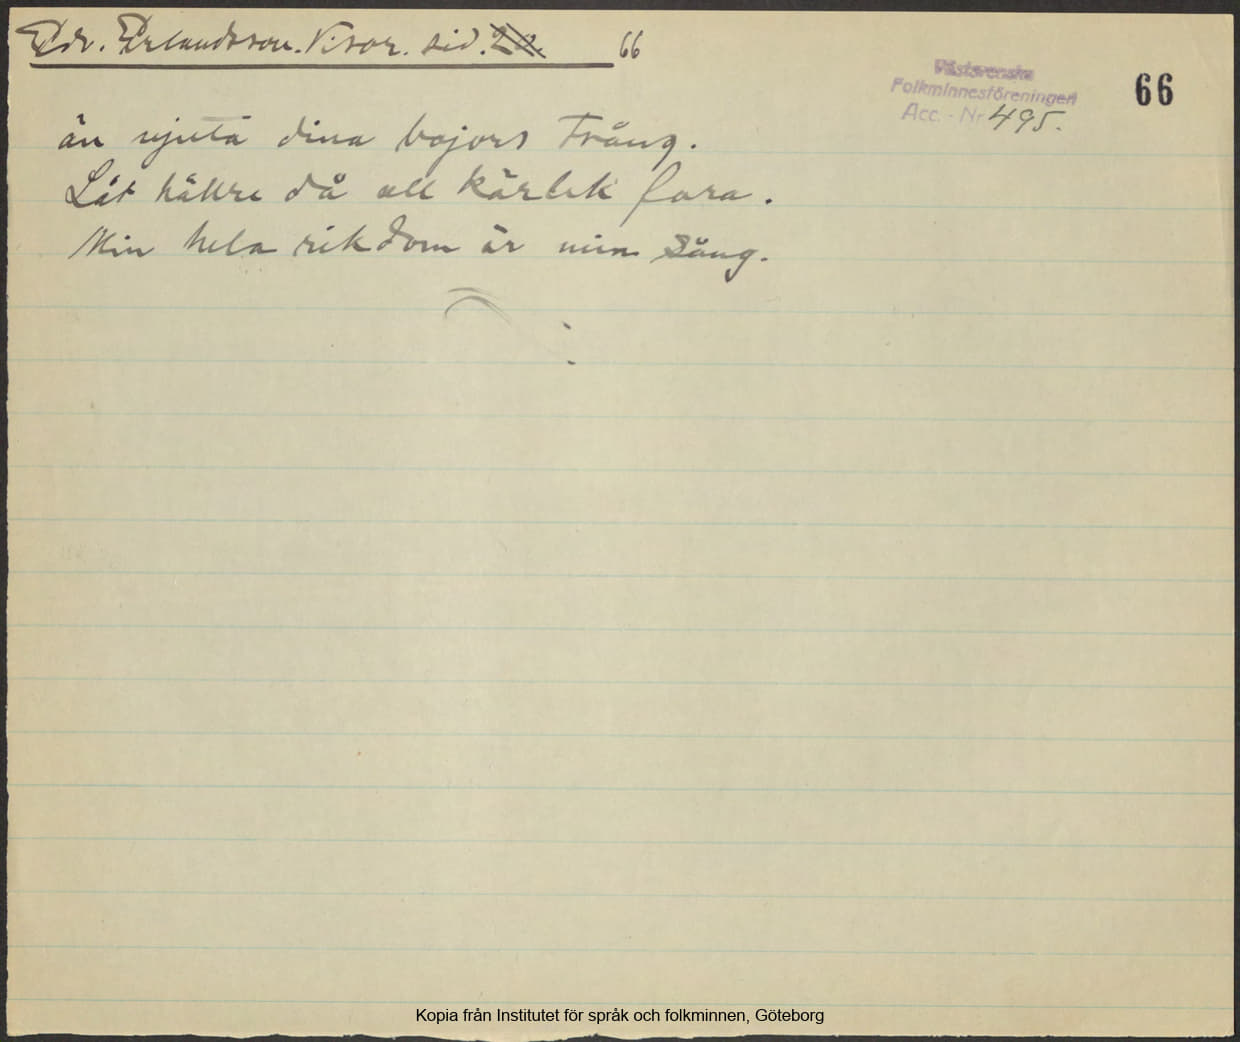 Edv. Erlandsson. Visor. sid. 66
66
Västsvenska
Folkminnesföreningen
Acc. - Nr 495.
än njuta dina bojors Tvång.
Låt hällre då all kärlek fara.
Min hela rikdom är min Sång.
Kopia från Institutet för språk och folkminnen, Göteborg